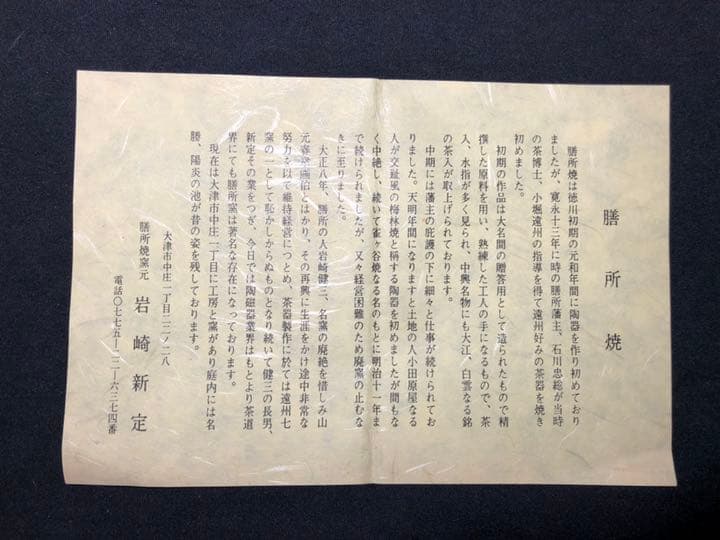 膳所焼
膳所焼は徳川初期の元和年間に陶器を作り初めており
ましたが、寛永十三年に時の膳所藩主、石川忠総が当時
の茶博士、小堀遠州の指導を得て遠州好みの茶器を焼き
初めました。
初期の作品は大名間の贈答用として造られたもので精
撰した原料を用い、熟練した工人の手になるもので、茶
入、水指が多く見られ、中興名物にも大江、白雲なる銘
の茶入が取上げられております。
中期には藩主の庇護の下に細々と仕事が続けられてお
りました。天明年間になりますと土地の人小田原屋なる
人が交趾風の梅林焼と称する陶器を初めましたが間もな
く中絶し、続いて雀ヶ谷焼なる名のもとに明治十一年ま
で続けられましたが、又々経営困難のため廃窯の止むな
きに至りました。
大正八年、膳所の人岩崎健三、名窯の廃絶を惜しみ山
元春挙画伯とはかり、その再興に生涯をかけ途中非常な
努力を以て維持経営につとめ、茶器製作に於ては遠州七
窯の一として恥かしからぬものとなり続いて健三の長男、
新定その業をつぎ、今日では陶磁器業界はもとより茶道
界にても膳所窯は著名な存在になっております。
現在は大津市中庄一丁目に工房と窯があり庭内には名
勝、陽炎の池が昔の姿を残しております。
大津市中庄一丁目二二ノ二八
膳所焼窯元 岩崎新定
電話〇七七五—二三—六三七四番